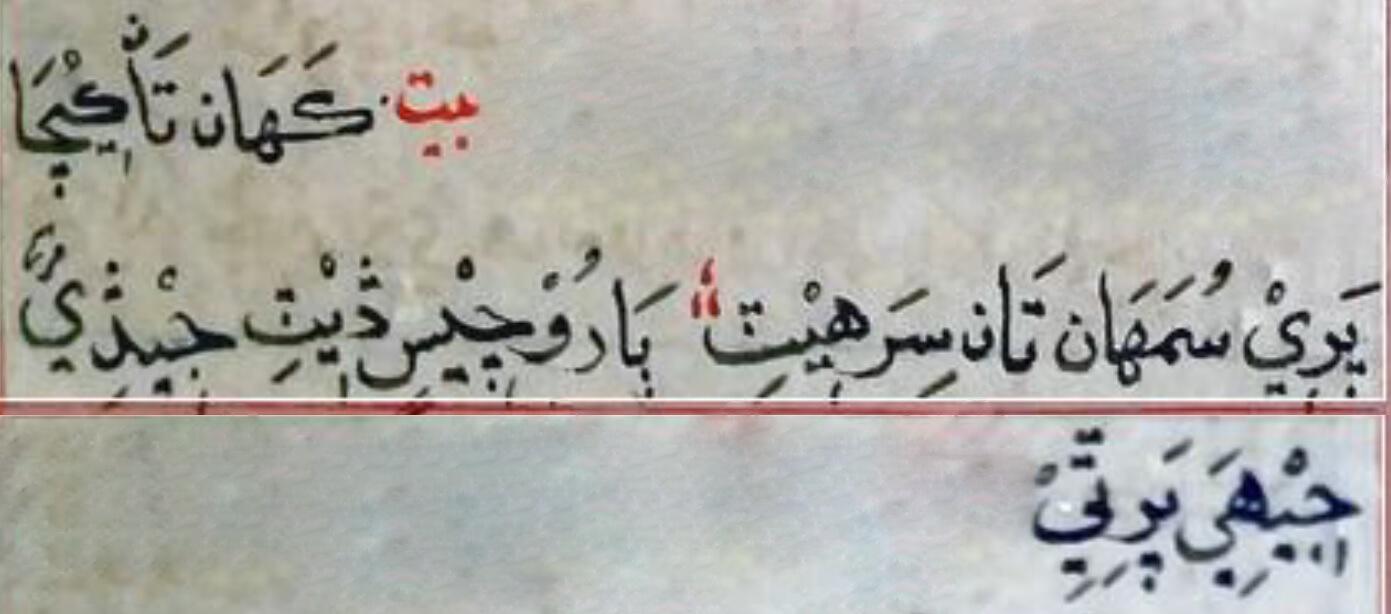 بيت كَهَان تَان ڪِيْچَا
پَرِيْ سُمَهَان تَان سِرَ هيْتِ بَارُوْچِيْسِ ڎِيْتِ جِيْڎِيُّ
جِيْهِيَ پَرِتِّيْ